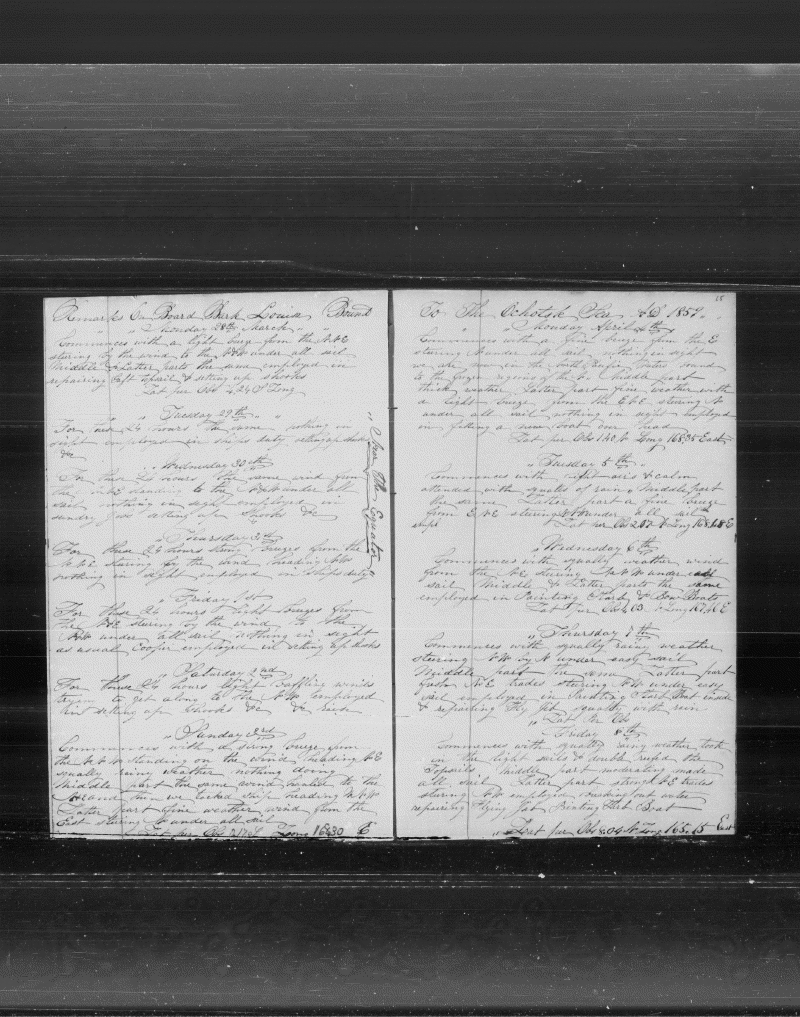 Remarks On Board Bark Louisa Bound
" Monday 28th March "
Commences with a light breeze from the N.E
stering by the wind to the NW under all sail
Middle & Latter parts the same employed in
repairing Top sail & setting up shooks
Lat per Obs 4.24 S Long
" Tuesday 29th "
For these 24 hours the same nothing in
sight employed in ships duty setting up shooks
&c
" Wednesday 30th
For these 24 hours the same wind from
the NE standing to the NW under all
sail nothing in sight employed in
sundry jobs setting up Shooks &c
" Thursday 31st
For these 24 hours strong breezes from the
N.E stering by the wind heading NW
nothing in sight employed in ships duty
" Near the Equator "
" Friday 1st
For these 24 hours light breezes from
the NE stering by the wind to the
NW under all sail nothing in sight
as usual Cooper employed in seting up shooks
" Saturday 2nd
For these 24 hours light Baffling winds
tryan to get along to the NW employed
in setting up shooks &c &c
" Sunday 3rd
Commences with a strong breeze from
the standing on the wind heading NE
squally rainy weather nothing doing
Middle part the same wind hauled to the
and then we tacked ship heading
Latter part fine weather wind from the
East stering N under all sail
Lat per Obs Long 168.30 E
28
To The Ochotsk Sea AD 1859 "
" Monday April 4th
Commences with a fine breeze from the E
stering N under all sail nothing in sight
we are now in the North Pacific Waters bound
to the frozen regions of the N. Middle part
thick weather Latter part fine weather with
a light breeze from the ENE stering N
under all sail nothing in sight employed
in fitting a new boat over head
Lat per Obs 1.40 N Long 168.35 East
" Tuesday 5th "
Commences with light airs & calm
attended with squalls of rain Middle part
the same Latter part a fine breeze
from ENE stering under all sail
Lat per Obs N Long 168.28 E
" Wednesday 6th
Commences with squally weather wind
from the NE stering NW under all
sail Middle & Latter parts the same
employed in Painting Starb & Bow Boats
Lat per Obs N Long 167.46 E
" Thursday 7th
Commences with squally rainy weather
stering NW by N under easy sail
Middle part the same Latter part
fresh NE trades stering NW under easy
sail employed in Painting Starb Boat inside
& repairing Fly Jib squally with rain
" Lat Per Obs
" Friday 8th
Commences with squally rainy weather took
in the light sails & double reefed the
Topsails Middle part moderating made
all sail Latter part strong NE trades
stering NW employed in
repairing Flying Jib Painting Starb Boat
" Lat per Obs N Long 165.15 East